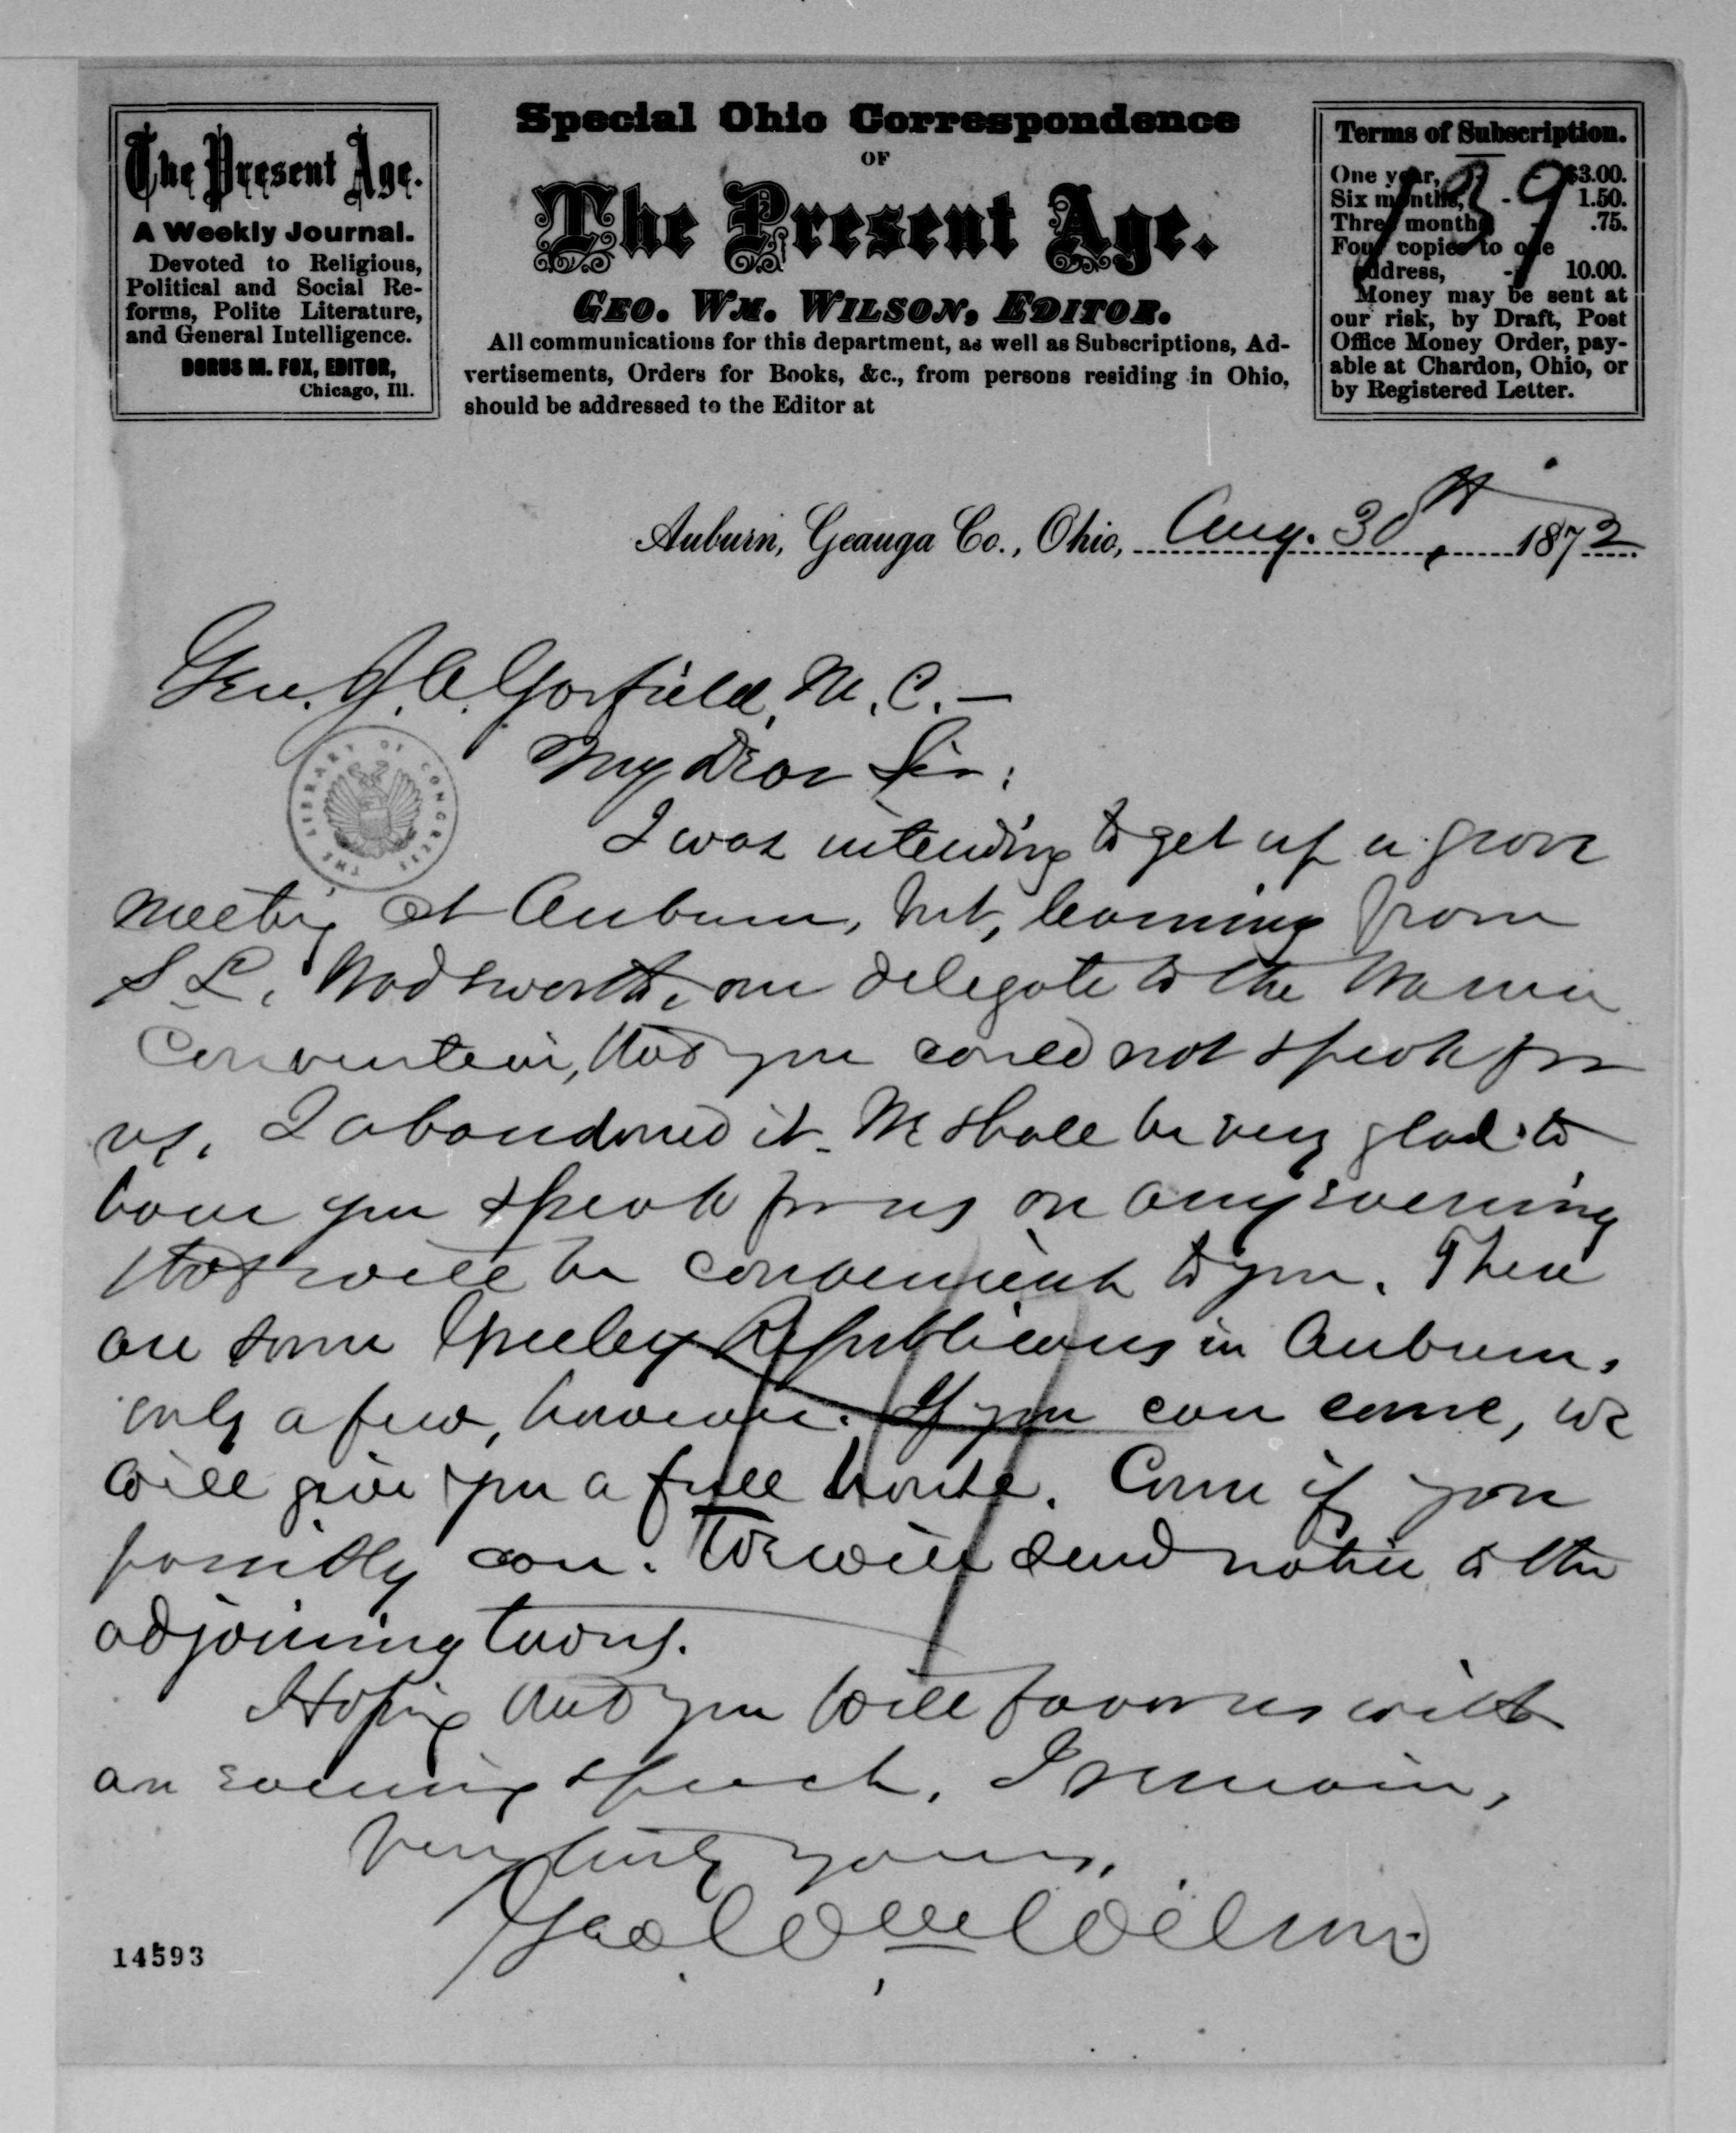 The Present Age.
A Weekly Journal.
Devoted to Religious,
Political and Social Re-
forms, Polite Literature,
and General Intelligence.
DORUS M. FOX, EDITOR,
Chicago, Ill.
Special Ohio Correspondence
OF
The Present Age.
GEO. WM. WILSON, EDITOR.
All communications for this department, as well as Subscriptions, Ad-
vertisements, Orders for Books, &c., from persons residing in Ohio,
should be addressed to the Editor at
Terms of Subscription.
One year, - $3.00.
Six months, - 1.50.
Three months - .75.
Four copies to one
address, - 10.00.
Money may be sent at
our risk, by Draft, Post
Office Money Order, pay-
able at Chardon, Ohio, or
by Registered Letter.
Auburn, Geauga Co., Ohio, Aug. 30th, 1872.
Gen. J. A. Garfield, M. C. —
My Dear Sir:
I was intending to get up a grove
meeting at Auburn, but, learning from
S. L. Wadsworth, our delegate to the Warren
Convention, that you could not speak for
us, I abandoned it. We shall be very glad to
have you speak for us on any evening
that will be convenient to you. There
are some Greeley Republicans in Auburn,
only a few, however. If you can come, we
will give you a full house. Come if you
possibly can. We will send notice to the
adjoining towns.
Hoping that you will favor us with
an evening speech, I remain,
Very truly yours,
Geo. Wm. Wilson
THE LIBRARY OF CONGRESS
14593